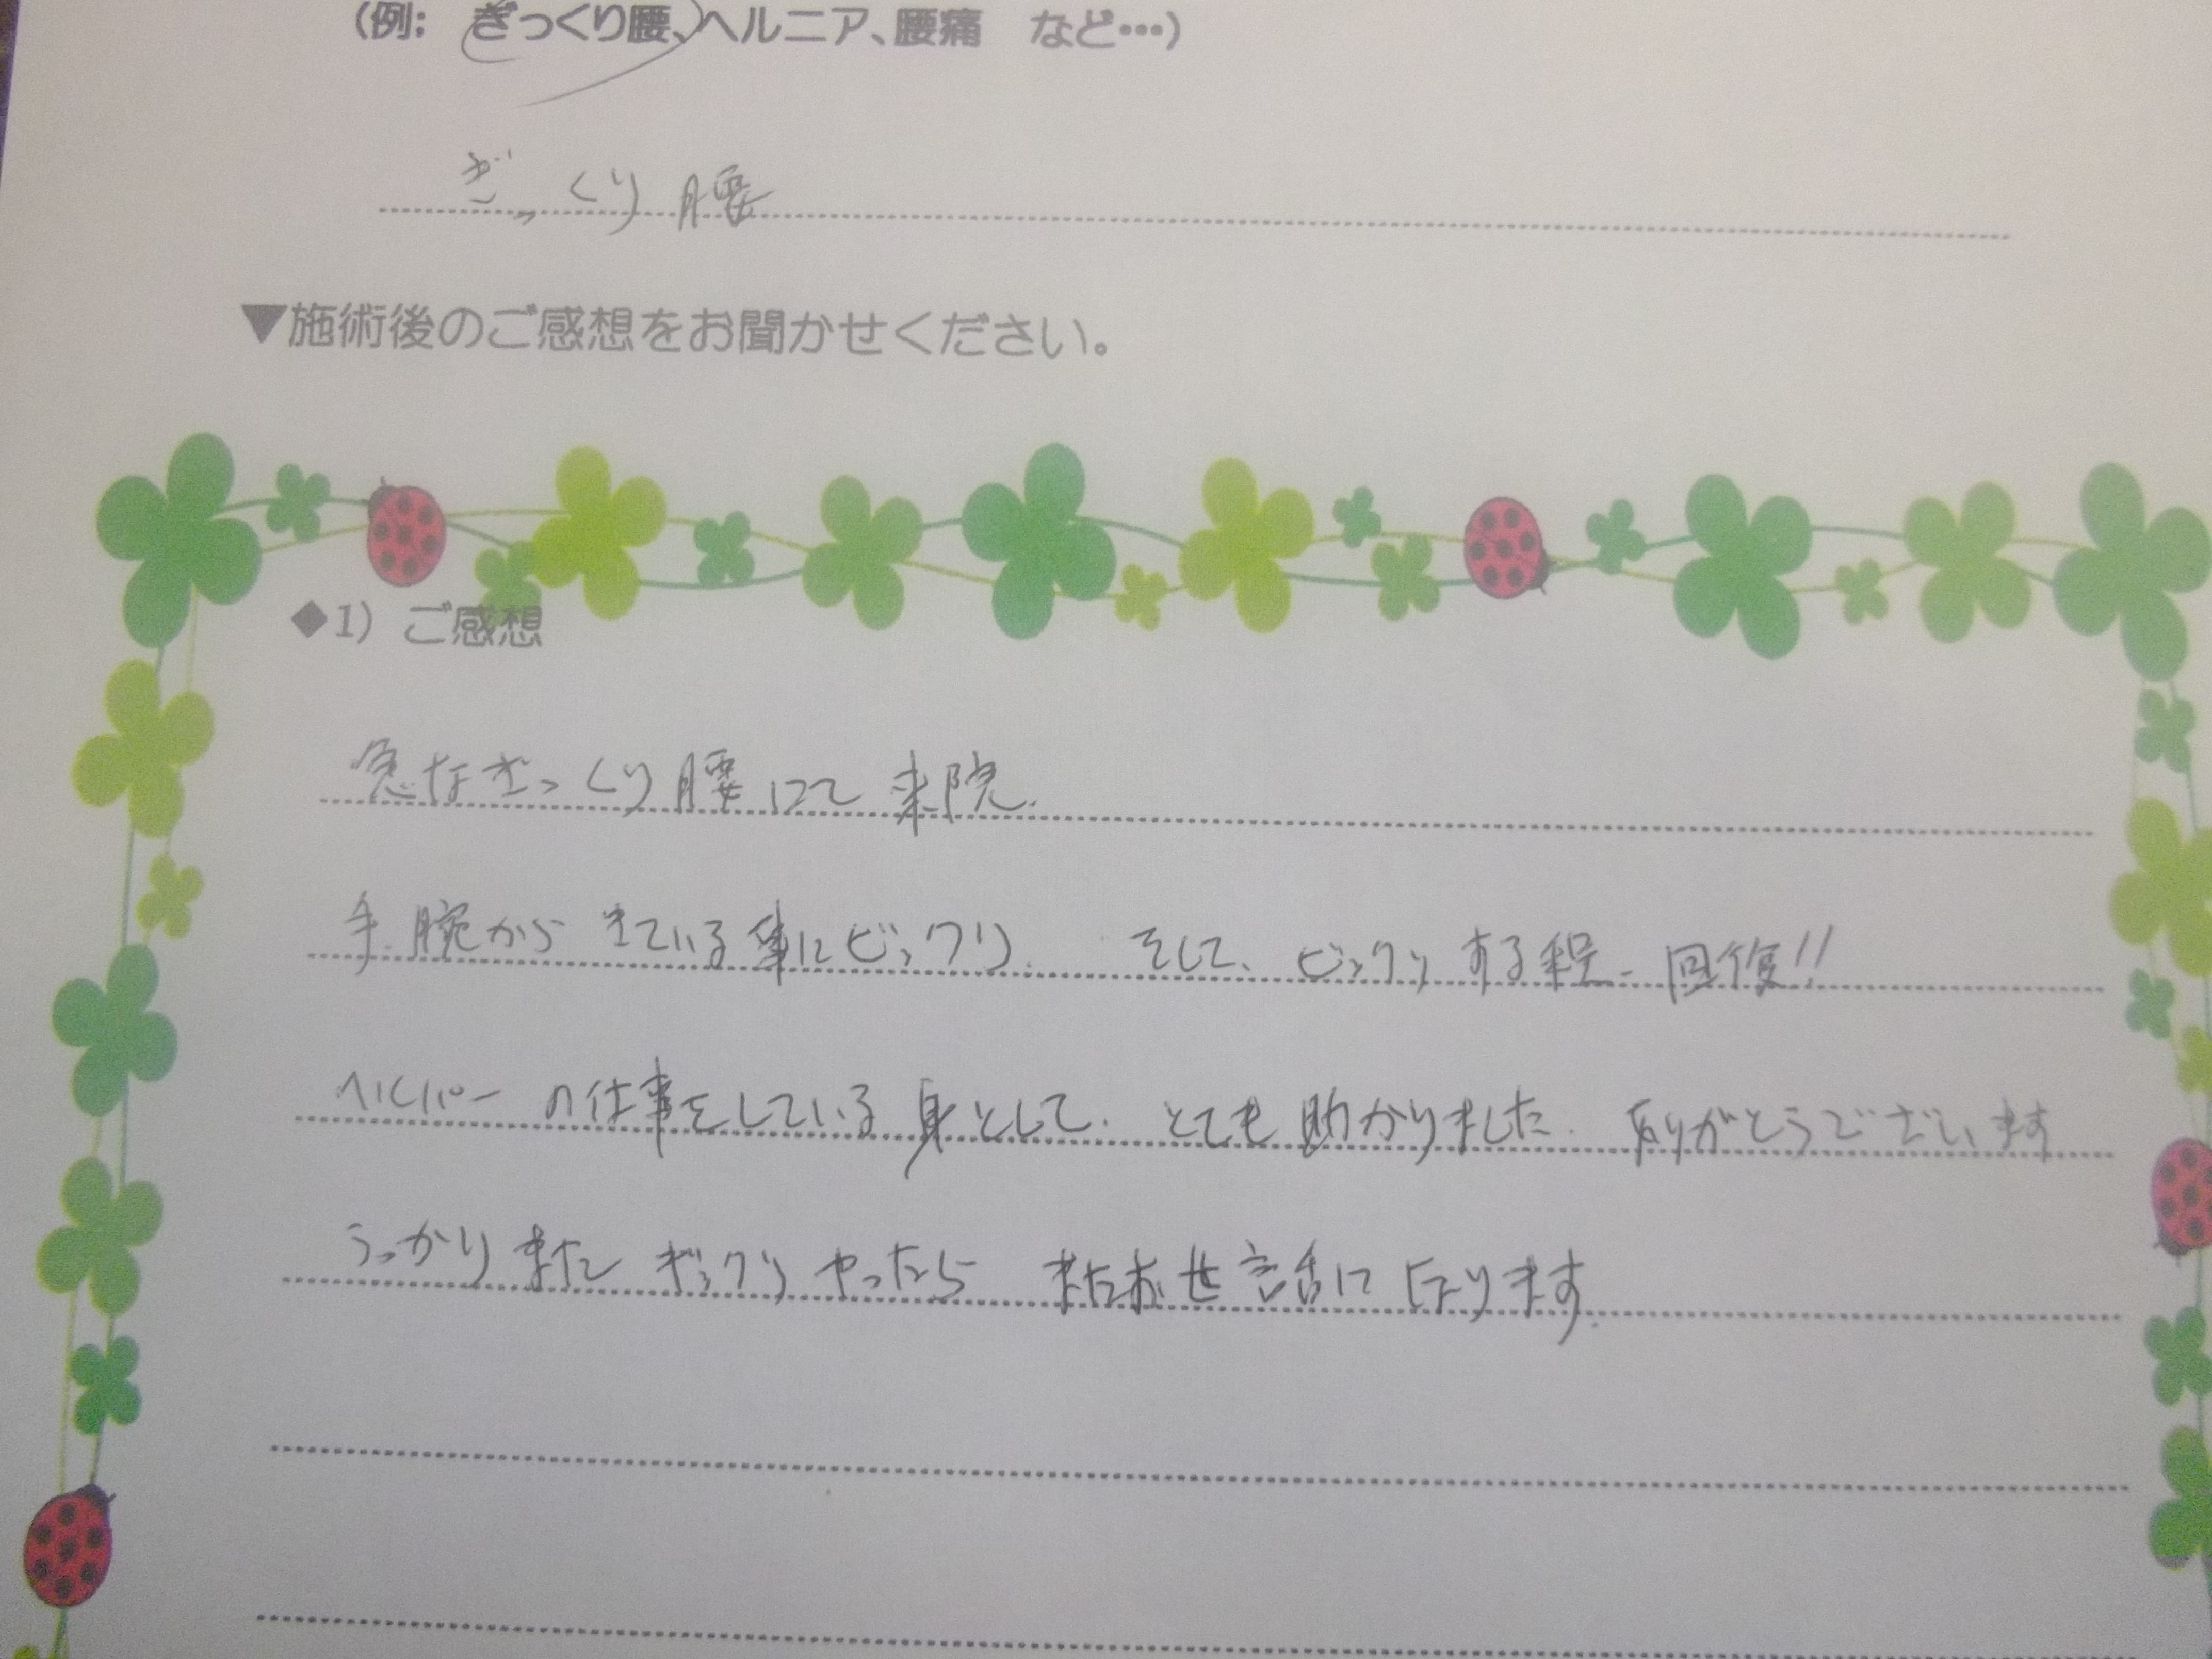 （例： ぎっくり腰、ヘルニア、腰痛　など…）
ぎっくり腰
▼施術後のご感想をお聞かせください。
◆1） ご感想
急なぎっくり腰にて来院.
手.腕からきている事にビックリ.　そして、ビックリする程、回復!!
ヘルパーの仕事をしている身として、とても助かりました. ありがとうございます
うっかりまたギックリやったら　またお世話になります.